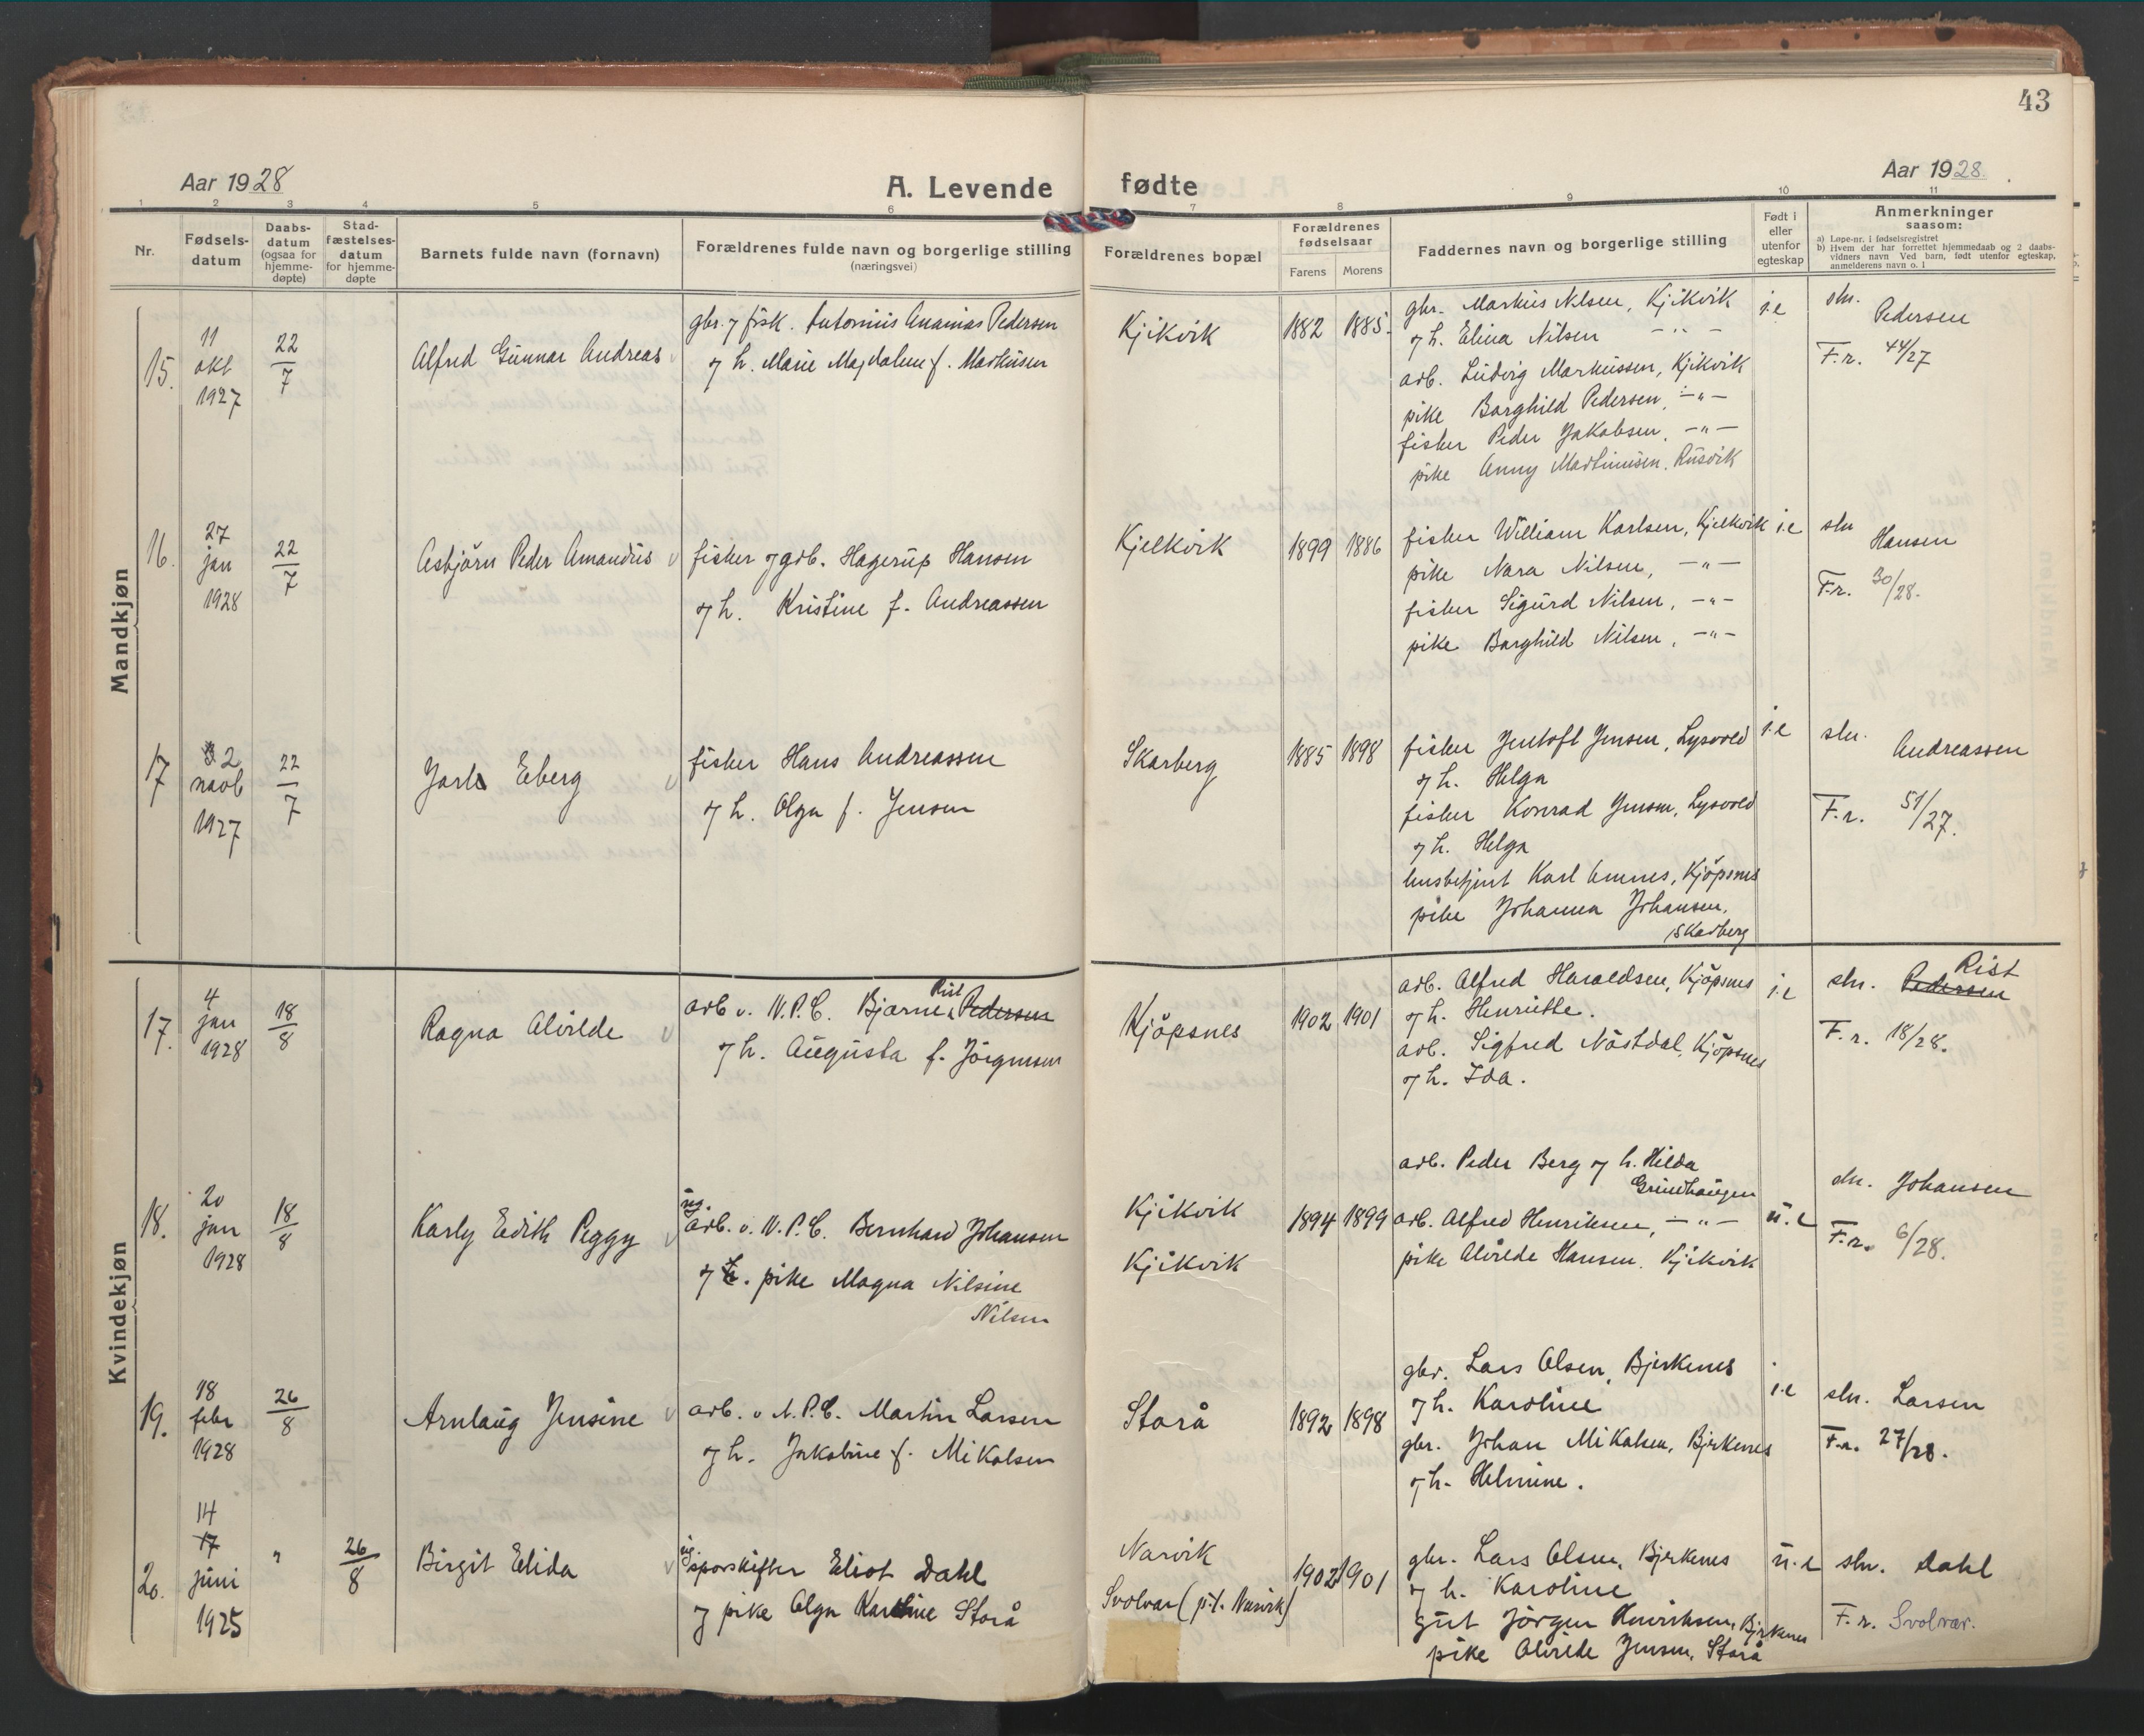 43
Aar 1928
A. Levende fødte
Aar 1928.
1 2 3 4 5 6 7 8 9 10 11
Nr.
Fødsels-
datum
Daabs-
datum
(ogsaa for
hjemme-
døpte)
Stad-
fæstelses-
datum
for hjemme-
døpte
Barnets fulde navn (fornavn)
Forældrenes fulde navn og borgerlige stilling
(næringsvei)
Forældrenes bopæl
Forældrenes
fødselsaar
Farens Morens
Faddernes navn og borgerlige stilling
Født i
eller
utenfor
egteskap
Anmerkninger
saasom:
a) Løpe-nr. i fødselsregistret
b) Hvem der har forrettet hjemmedaab og 2 daabs-
vidners navn Ved barn, født utenfor egteskap,
anmelderens navn o. l
Mandkjøn
15.
11
okt
1927
22
7
Alfred Gunnar Andreas
gbr. og fisk. Antonius Ananias Pedersen
og h. Marie Magdalene f. Markussen
Kjikvik
1882 1885.
gbr. Markus Nilsen, Kjikvik
og h. Elina Nilsen -"-
arb. Ludvig Markussen, Kjikvik
pike Borghild Pedersen, -"-
fisker Peder Jakobsen, -"-
pike Anny Martinusen, Rusvik
i.e
sln.
Pedersen
F.r. 44/27
16.
27
jan
1928
22
7
Asbjörn Peder Amandus v
fisker og arb. Hagerup Hansen
og h. Kristine f. Andreassen
Kjelkvik
1899 1886
fisker William Karlsen, Kjelkvik
pike Nara Nilsen, -"-
fisker Sigurd Nilsen, -"-
pike Borghild Nilsen, -"-
i.e
sln
Hansen
F.r. 30/28.
17
2
novb
1927
22
7
Jarle Eberg v
fisker Hans Andreassen
og h. Olga f. Jensen
Skarberg
1885 1898
fisker Jentoft Jensen, Lysvold
og h. Helga
fisker Konrad Jensen, Lysvold
og h. Helga
husbetjent Karl Amnes, Kjöpsnes
pike Johanna Johansen,
Skarberg
i.e
sln.
Andreassen
F.r. 51/27.
Kvindekjøn
17.
4
jan
1928
18
8
Ragna Alvilde v
Rist
arb v. N.P.C. Bjarne Pedersen
og h. Augusta f. Jörgensen
Kjöpsnes
1902 1901
arb. Alfred Haraldsen, Kjöpsnes
og h. Henriette.
arb. Sigfred Nöstdal, Kjöpsnes
og h. Ida.
i.e
Rist
sln. Pedersen
F.r. 18/28.
18.
20
jan
1928
18
8
Karly Edith Peggy v
ug.
arb. v. N.P.C. Bernhard Johansen
og h. pike Magna Nilsine
Nilsen
Kjikvik
Kjikvik
1894 1899
arb. Peder Berg og h. Hilda
Grindhaugen
arb. Alfred Henriksen, -"-
pike Alvilde Hansen. Kjikvik
u.e
sln. Johansen
F.r. 6/28.
19.
18
febr
1928
26
8
Arnlaug Jensine v
arb. v N.P.C. Martin Larsen
og h. Jakobine f. Mikalsen
Storå
1892 1898
gbr. Lars Olsen, Bjerkenes
og h. Karoline
gbr. Johan Mikalsen, Bjrkenes
og h. Helmine.
i.e
sln. Larsen
F.r. 27/28.
20.
14
17
juni
1925
"
26
8
Birgit Elida v
ug.
sporskifter Eliot Dahl
og pike Olga Karoline Storå
Narvik
Svolvær (p.t. Narvik)
1902 1901
gbr. Lars Olsen, Bjrkenes
og h. Karoline
gut Jörgen Henriksen, Bjrkenes
pike Alvilde Jensen, Storå
u.e
sln. Dahl
F.r. Svolvær.